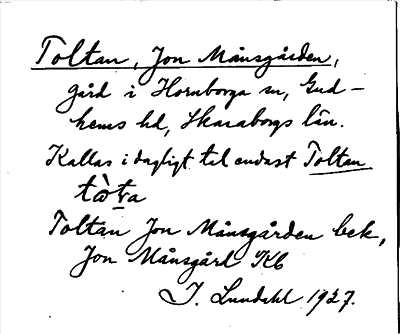 Toltan, Jon Månsgården,
gård i Hornborga sn, Gud-
hems hd, Skaraborgs län.
Kallas i dagligt tal endast Toltan
tòta
Toltan Jon Månsgården bek,
Jon Månsgård Kb
J. Lundahl 1927.